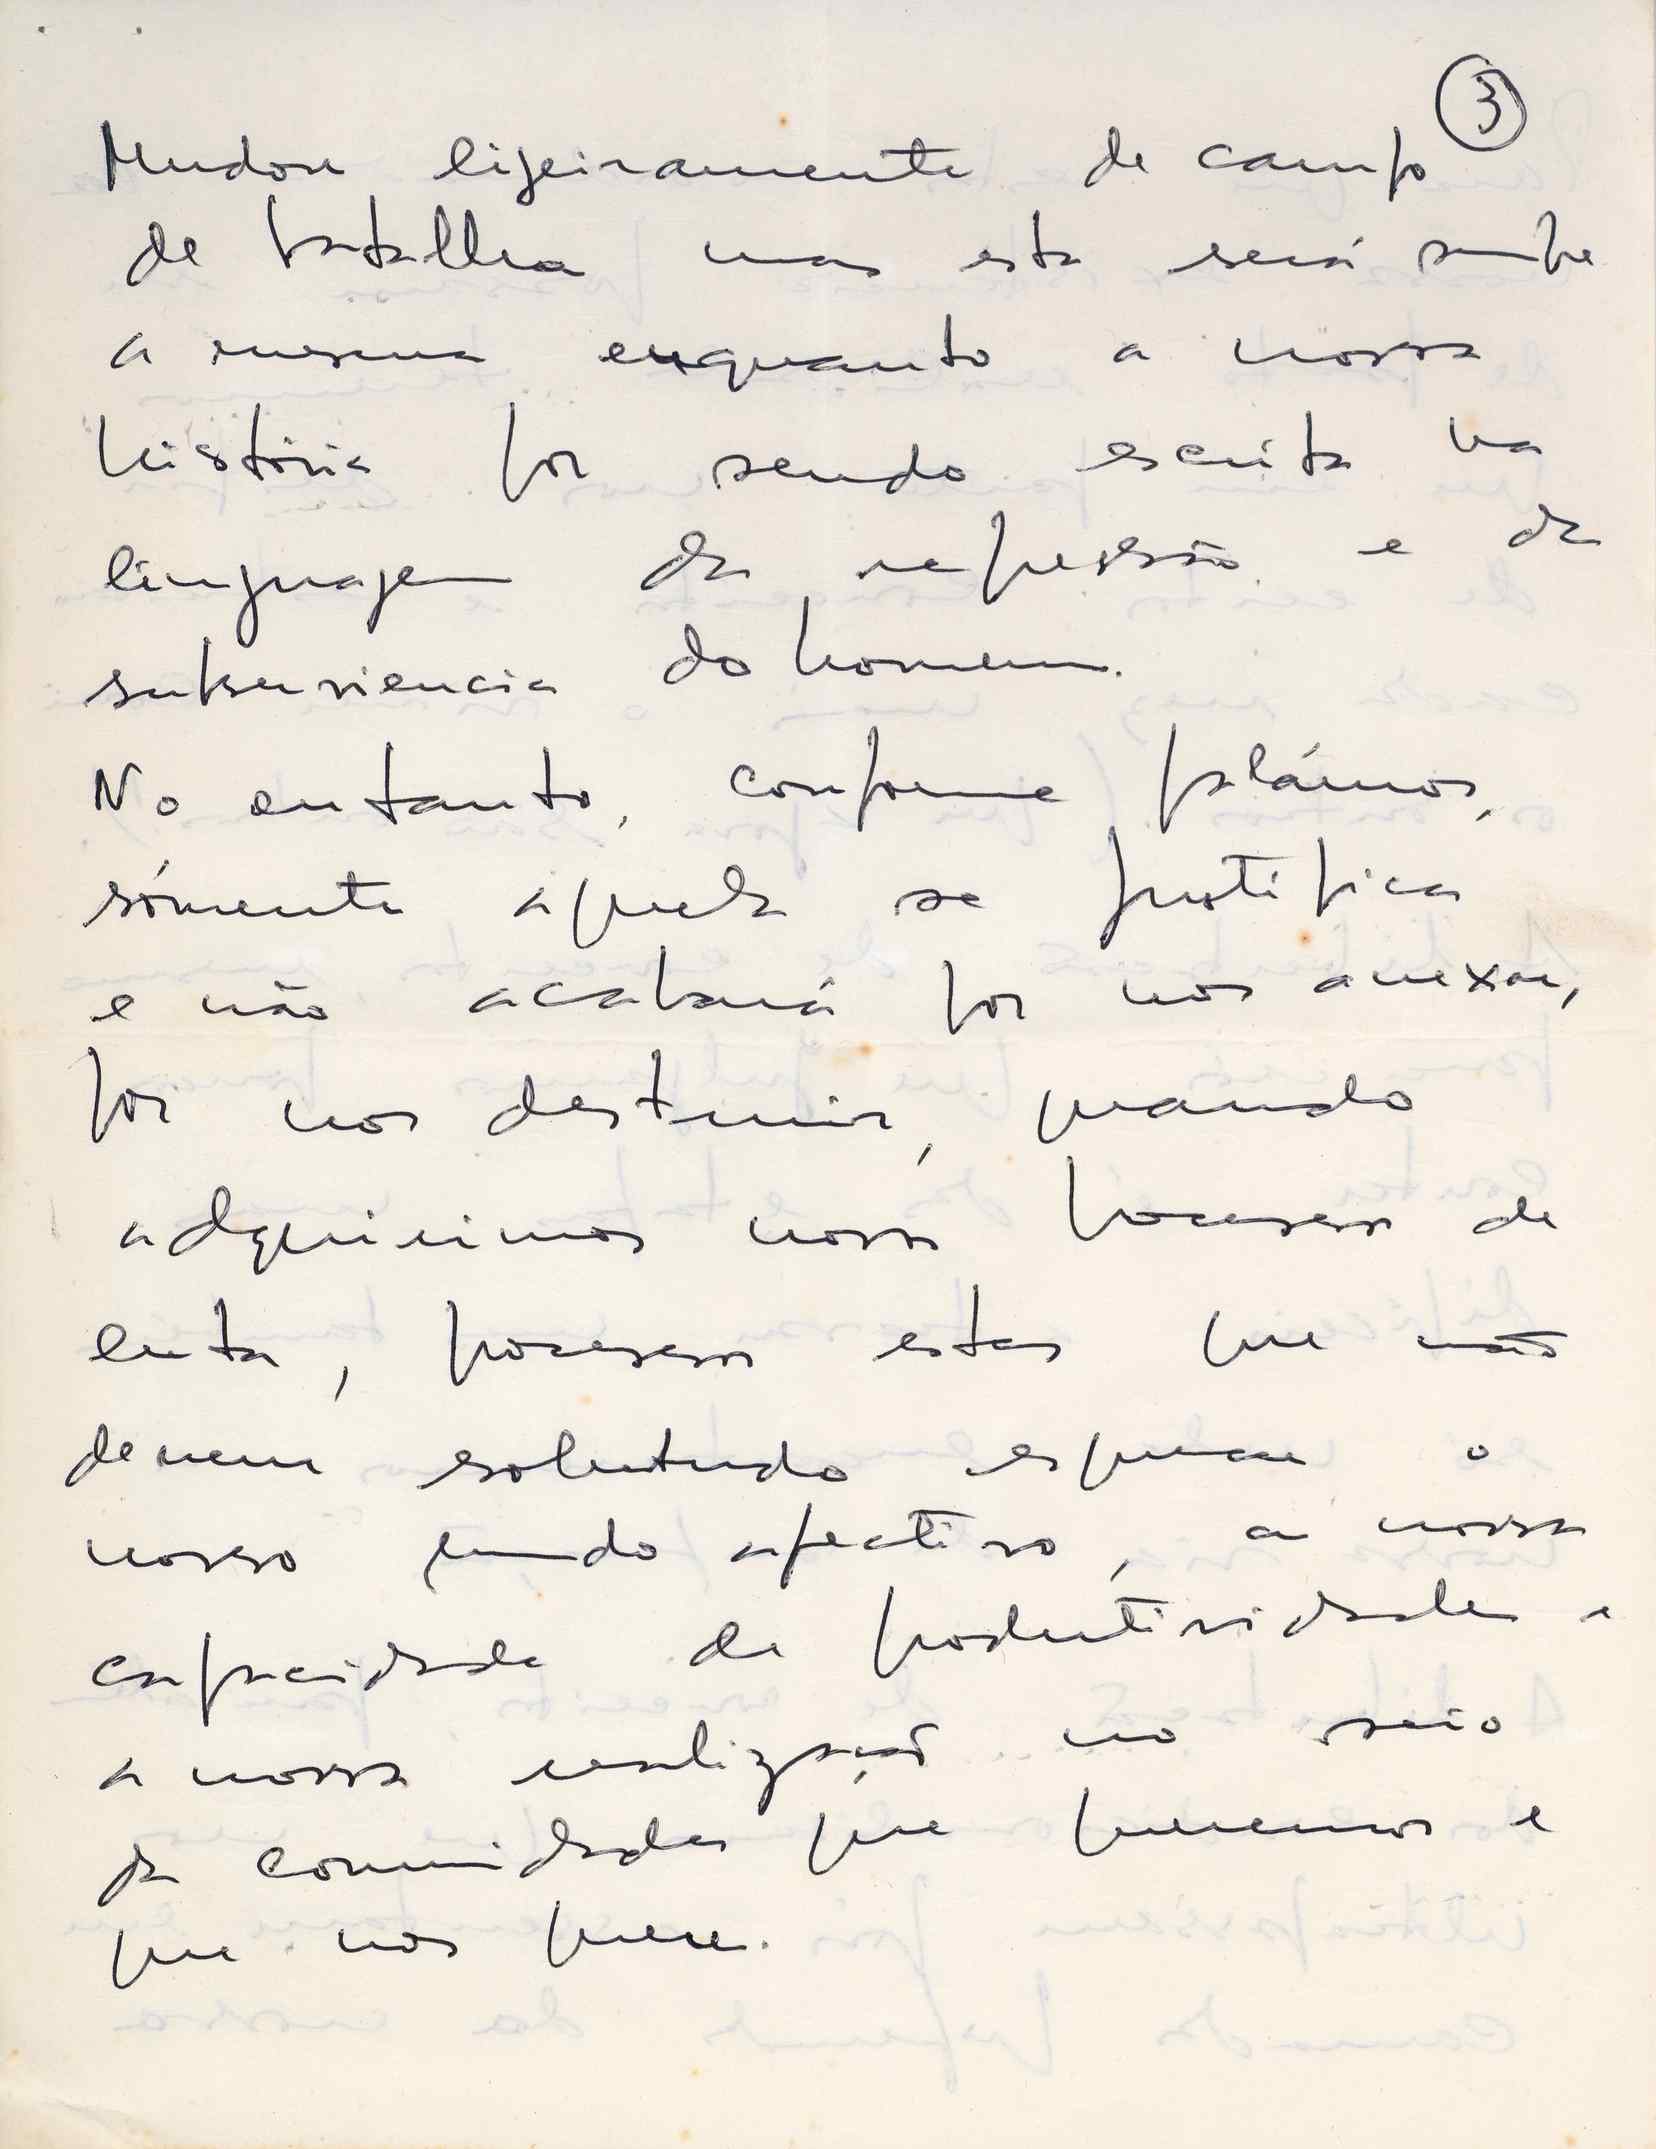 3
Mudou ligeiramente de campo
de batalha mas esta será sempre
a mesma enquanto a nossa
história for sendo escrita na
linguagem da repressão e da
subserviencia do homem.
No entanto, conforme falámos,
sómente aquela se justifica
e não acabará por nos anexar,
por nos destruir, quando
adquirirmos nossos processos de
luta, processos estes que não
devem sobretudo esquecer o
nosso mundo afectivo, a nossa
capacidade de produtividade e
a nossa realização no seio
da comunidade que queremos e
que nos quere.